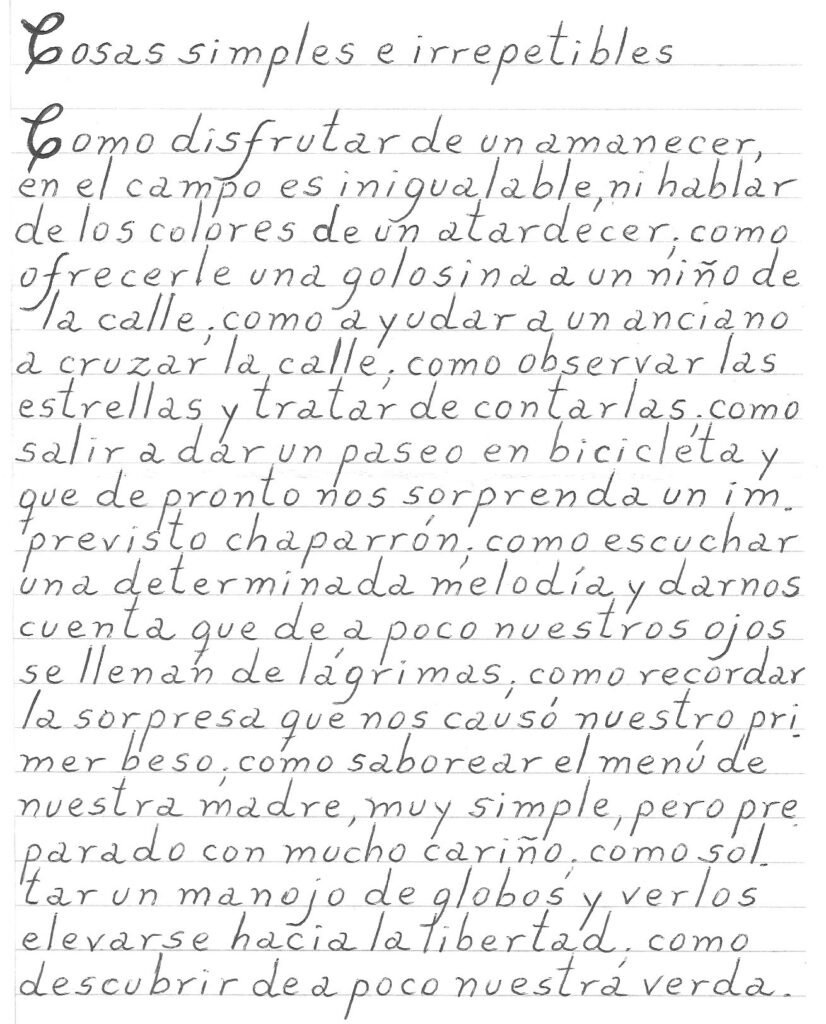 Cosas simples e irrepetibles
Como disfrutar de un amanecer,
en el campo es inigualable, ni hablar
de los colores de un atardecer; como
ofrecerle una golosina a un niño de
la calle; como ayudar a un anciano
a cruzar la calle; como observar las
estrellas y tratar de contarlas; como
salir a dar un paseo en bicicleta y
que de pronto nos sorprenda un im-
previsto chaparrón; como escuchar
una determinada melodía y darnos
cuenta que de a poco nuestros ojos
se llenan de lágrimas; como recordar
la sorpresa que nos causó nuestro pri
mer beso; como saborear el menú de
nuestra madre, muy simple, pero pre
parado con mucho cariño; como sol-
tar un manojo de globos y verlos
elevarse hacia la libertad; como
descubrir de a poco nuestra verda-